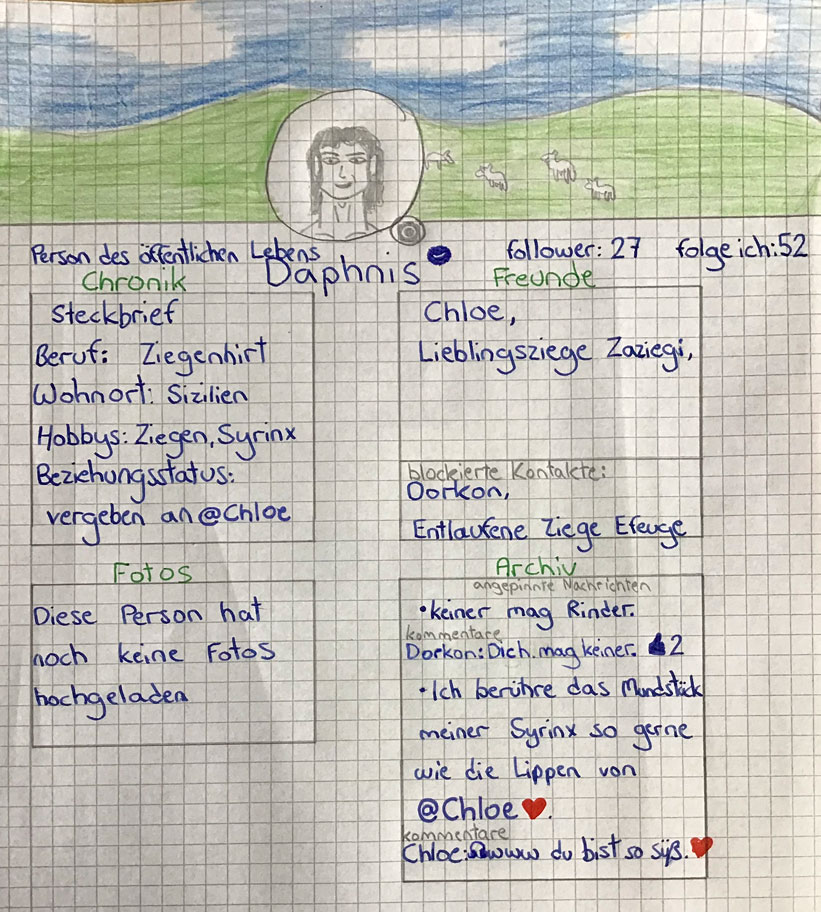 Person des öffentlichen Lebens
Daphnis
follower: 27 folge ich: 52
Chronik
Steckbrief
Beruf: Ziegenhirt
Wohnort: Sizilien
Hobbys: Ziegen, Syrinx
Beziehungsstatus:
vergeben an @Chloe
Freunde
Chloe,
Lieblingsziege Zaziegi,
blockierte Kontakte:
Dorkon,
Entlaufene Ziege Efeuge
Fotos
Diese Person hat
noch keine Fotos
hochgeladen
Archiv
angepinnte Nachrichten
• keiner mag Rinder.
kommentare
Dorkon: Dich mag keiner. 👍2
• Ich berühre das Mundstück
meiner Syrinx so gerne
wie die Lippen von
@Chloe ❤.
kommentare
Chloe: Ωwww du bist so süß. ❤